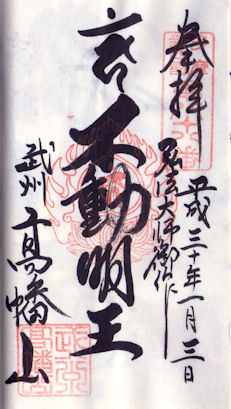 奉拝
平成三十年一月三日
弘法大師御作
不動明王
武州
高幡山